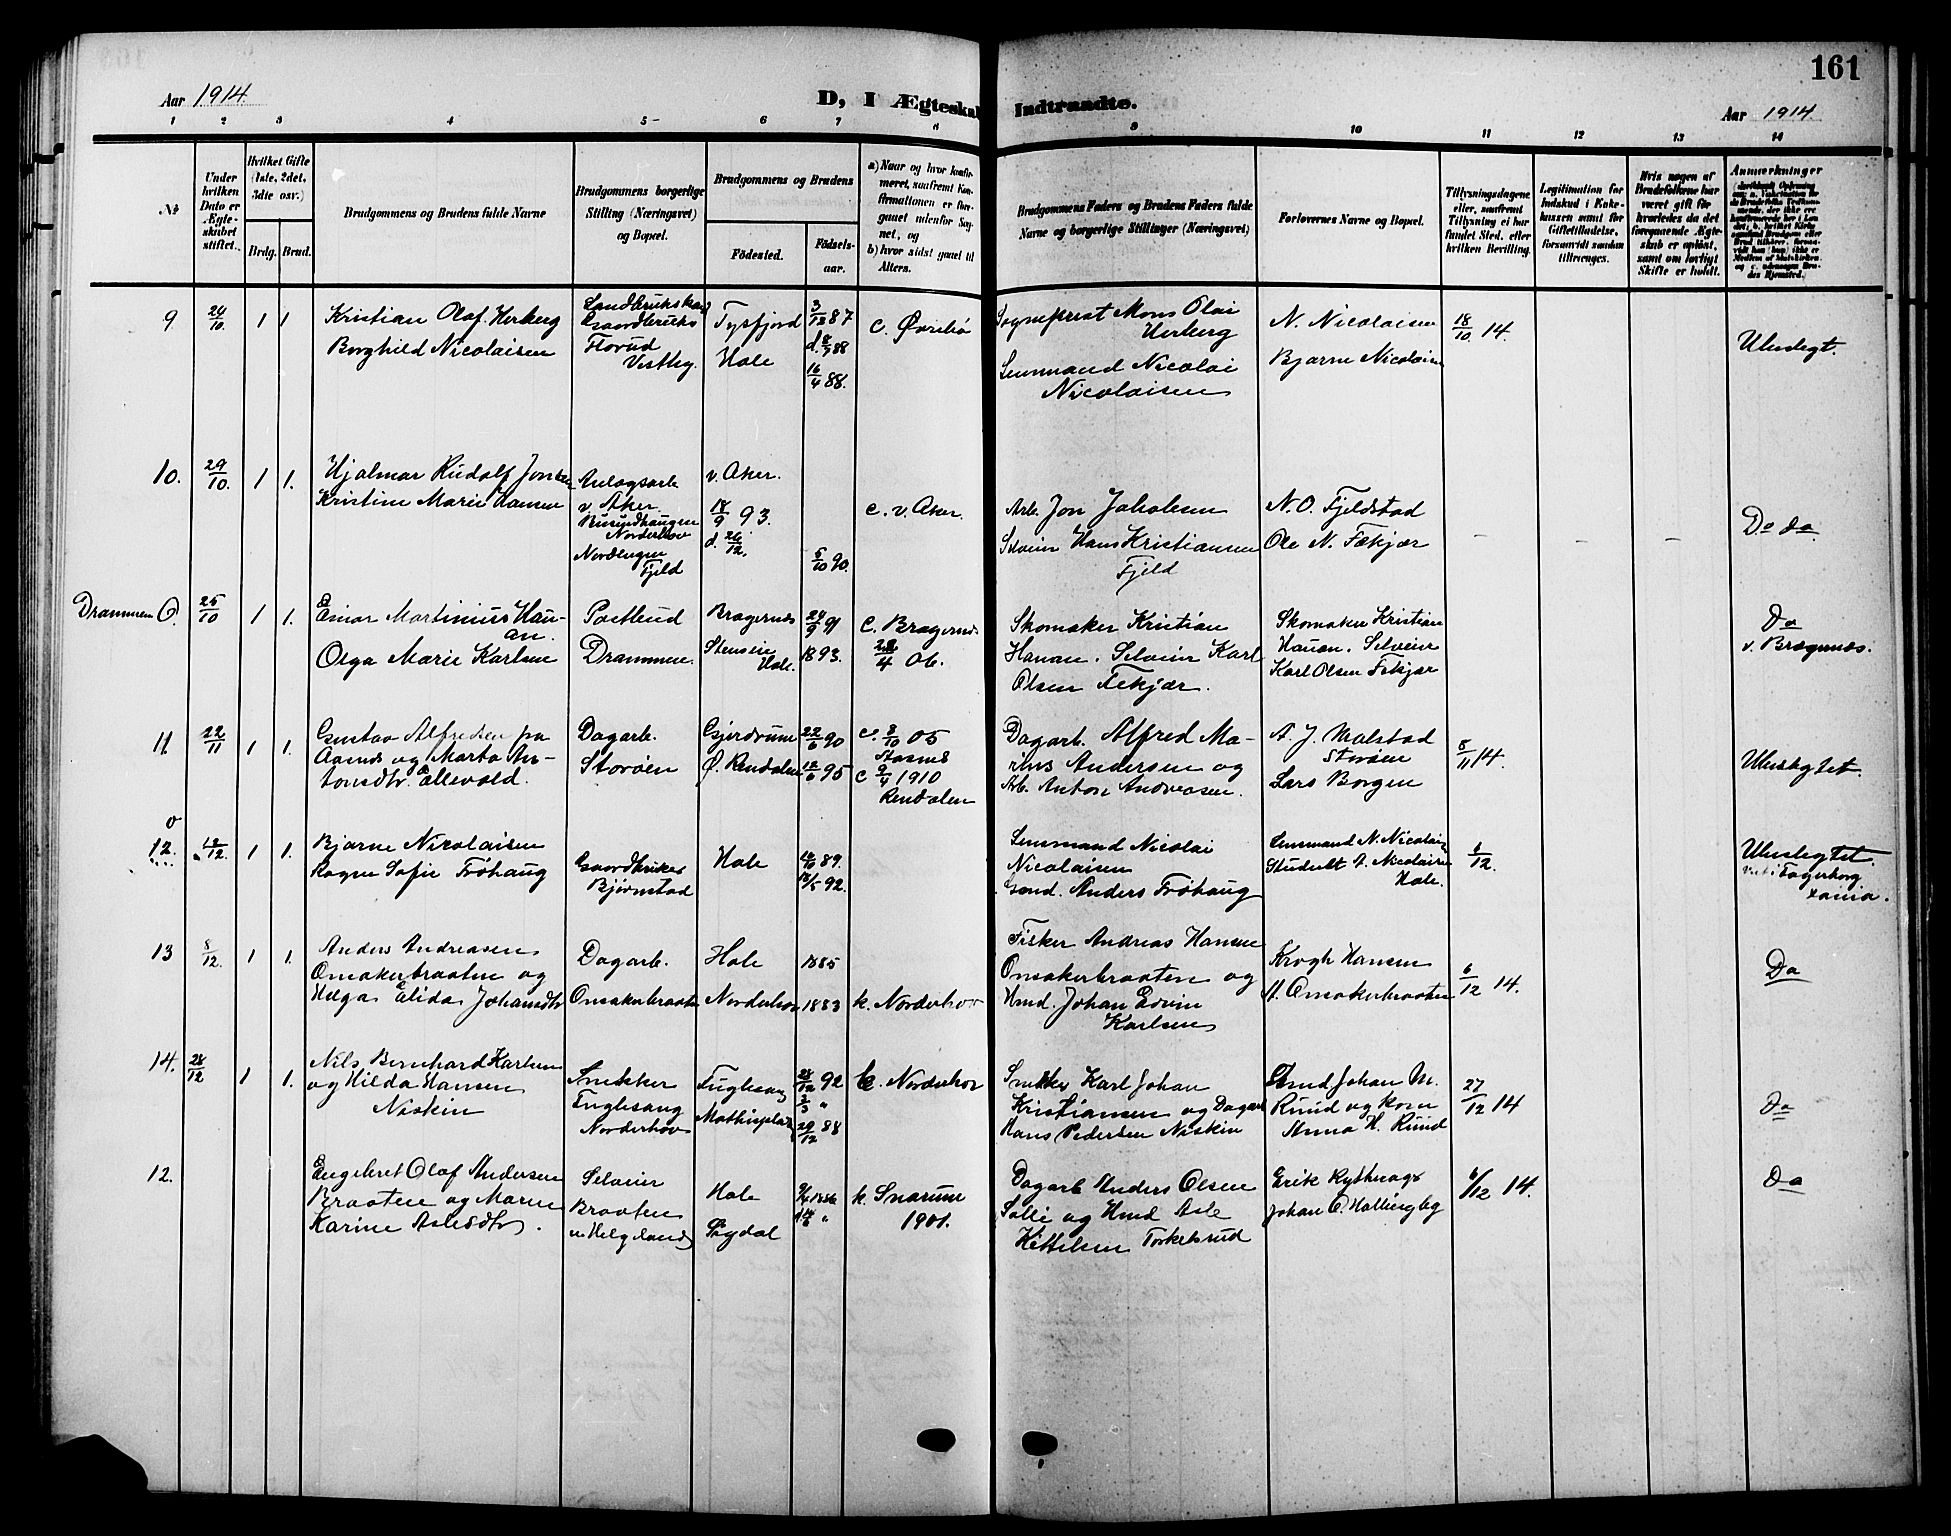 161
Aar 1914.
D, I Ægteskab Indtraadte.
Aar 1914.
1 2 3 4 5 6 7 8 9 10 11 12 13 14
No
Under hvilken Dato er Ægteskabet stiftet.
Hvilket Gifte (1ste, 2det, 3dte osv.)
Brdg. Brud.
Brudgommens og Brudens fulde Navne
Brudgommens borgerlige Stilling (Næringsvei) og Bopæl.
Brudgommens og Brudens
Fødested.
Fødselsaar.
a) Naar og hvor konfirmeret, saafremt Konfirmationen er foregaaet udenfor Sognet, og
b) hvor sidst gaaet til Alters.
Brudgommens Faders og Brudens Faders fulde Navne og borgerlige Stillinger (Næringsvei)
Forlovernes Navne og Bopæl.
Tillysningsdagene eller, saafremt Tillysning ei har fundet Sted, efter hvilken Bevilling.
Legitimation for Indskud i Enkekassen samt for Giftetilladelse, forsaavidt saadan tiltrænges.
Hvis nogen af Brudefolkene har været gift før hvorledes da det foregaaende Ægteskab er opløst, samt om lovligt Skifte er holdt.
Anmærkninger
9 24/10. 1 1 Kristian Olaf Herberg
Borghild Nicolaisen
Gaardbruks
Florud
Vestby.
Tysfjord
Hole
3/12 87
16/4 88.
c. Øvrebø
Sogneprest Mons Olai
Herberg
Lensmand Nicolai
Nicolaisen
N. Nicolaisen
Bjarne Nicolaisen
18/10 14.
Ubeslegt.
10. 29/10. 1 1. Hjalmar Rudolf Jonsen
Kristine Marie Hansen
Anlægsarb
v. Aker
Busundhaugen
Norderhov
Nordengen
Fjeld
v. Aker.
18/9 93.
d. 26/12.
5/10 90.
c. v. Aker.
Arb. Jon Jakobsen
Selveier Hans Kristiansen
Fjeld
N. O. Fjeldstad
Ole N. Fækjær
- - -
Do do
Drammen O. 25/10 1 1. Einar Martinius Hauan.
Olga Marie Karlsen
Postbud
Drammen.
Bragernes
Stensein
Hole.
24/9 91
1893.
C. Bragernes
22/4 06.
Skomaker Kristian
Hauan. Selveier Karl
Olsen Fekjær.
Skomaker Kristian
Hauan. Selveier
Karl Olsen Fekjær
Do
v. Bragernæs.
11 22/11 1 1. Gustav Alfredsen fra
Aasnes og Marta Antonsdtr. Ellevold.
Dagarb.
Storøen
Gjerdrum
Ø. Rendalen
22/6 90
12/6 95
c. 8/10 05
Aasnes
c 9/4 1910
Rendalen
Dagarb. Alfred Marius Andersen og
Arb. Anton Andreasen.
A. J. Malstad
Storøen
Lars Borgen
8/11 14.
Ubeslegtet.
12. 12/12. 1 1. Bjarne Nicolaisen
Ragna Sofie Frøhaug
Gaardbruker
Bjørnstad
Hole
12/10 89.
13/5 92.
Lensmand Nicolai
Nicolaisen
Anders Frøhaug
Lensmand N. Nicolaisen
Student A. Nicolaisen
Hole.
6/12.
Ubeslegtet.
Fagerborg
13 8/12. 1 1. Anders Andreasen
Onsakerbraaten og
Helga Elida Johansdtr
Dagarb.
Onsakerbraaten
Hole
Norderhov
1885
1883
k. Norderhov
Fisker Andreas Hansen
Onsakerbraaten og
Hmd. Johan Edvin
Karlsen
Krogh Hansen
H. Onsakerbraaten
6/12 14.
Do
14. 28/12 1 1. Nils Bernhard Karlsen
og Hilda Hansen
Niskin
Snekker
Fuglesang
Norderhov
Fuglesang
Mathisplads
28/12 92
29/12 88
k. Norderhov
Snekker Karl Johan
Kristiansen og Dagarb
Hans Pedersen Niskin
Hmd Johan M.
Ruud og kone
Anna H. Ruud
27/12 14
Do
12. Engebret Olaf Andersen
Braaten og Maren
Karine Aslesdtr.
Selveier
Braaten
u. Helgeland
Hole
Sigdal
k. Snarum
1901.
Dagarb Anders Olsen
Solli og Hmd Asle
Kittelsen Torkelsrud
Erik Rytterager
Johan E. Hallingby
6/12 14.
Do